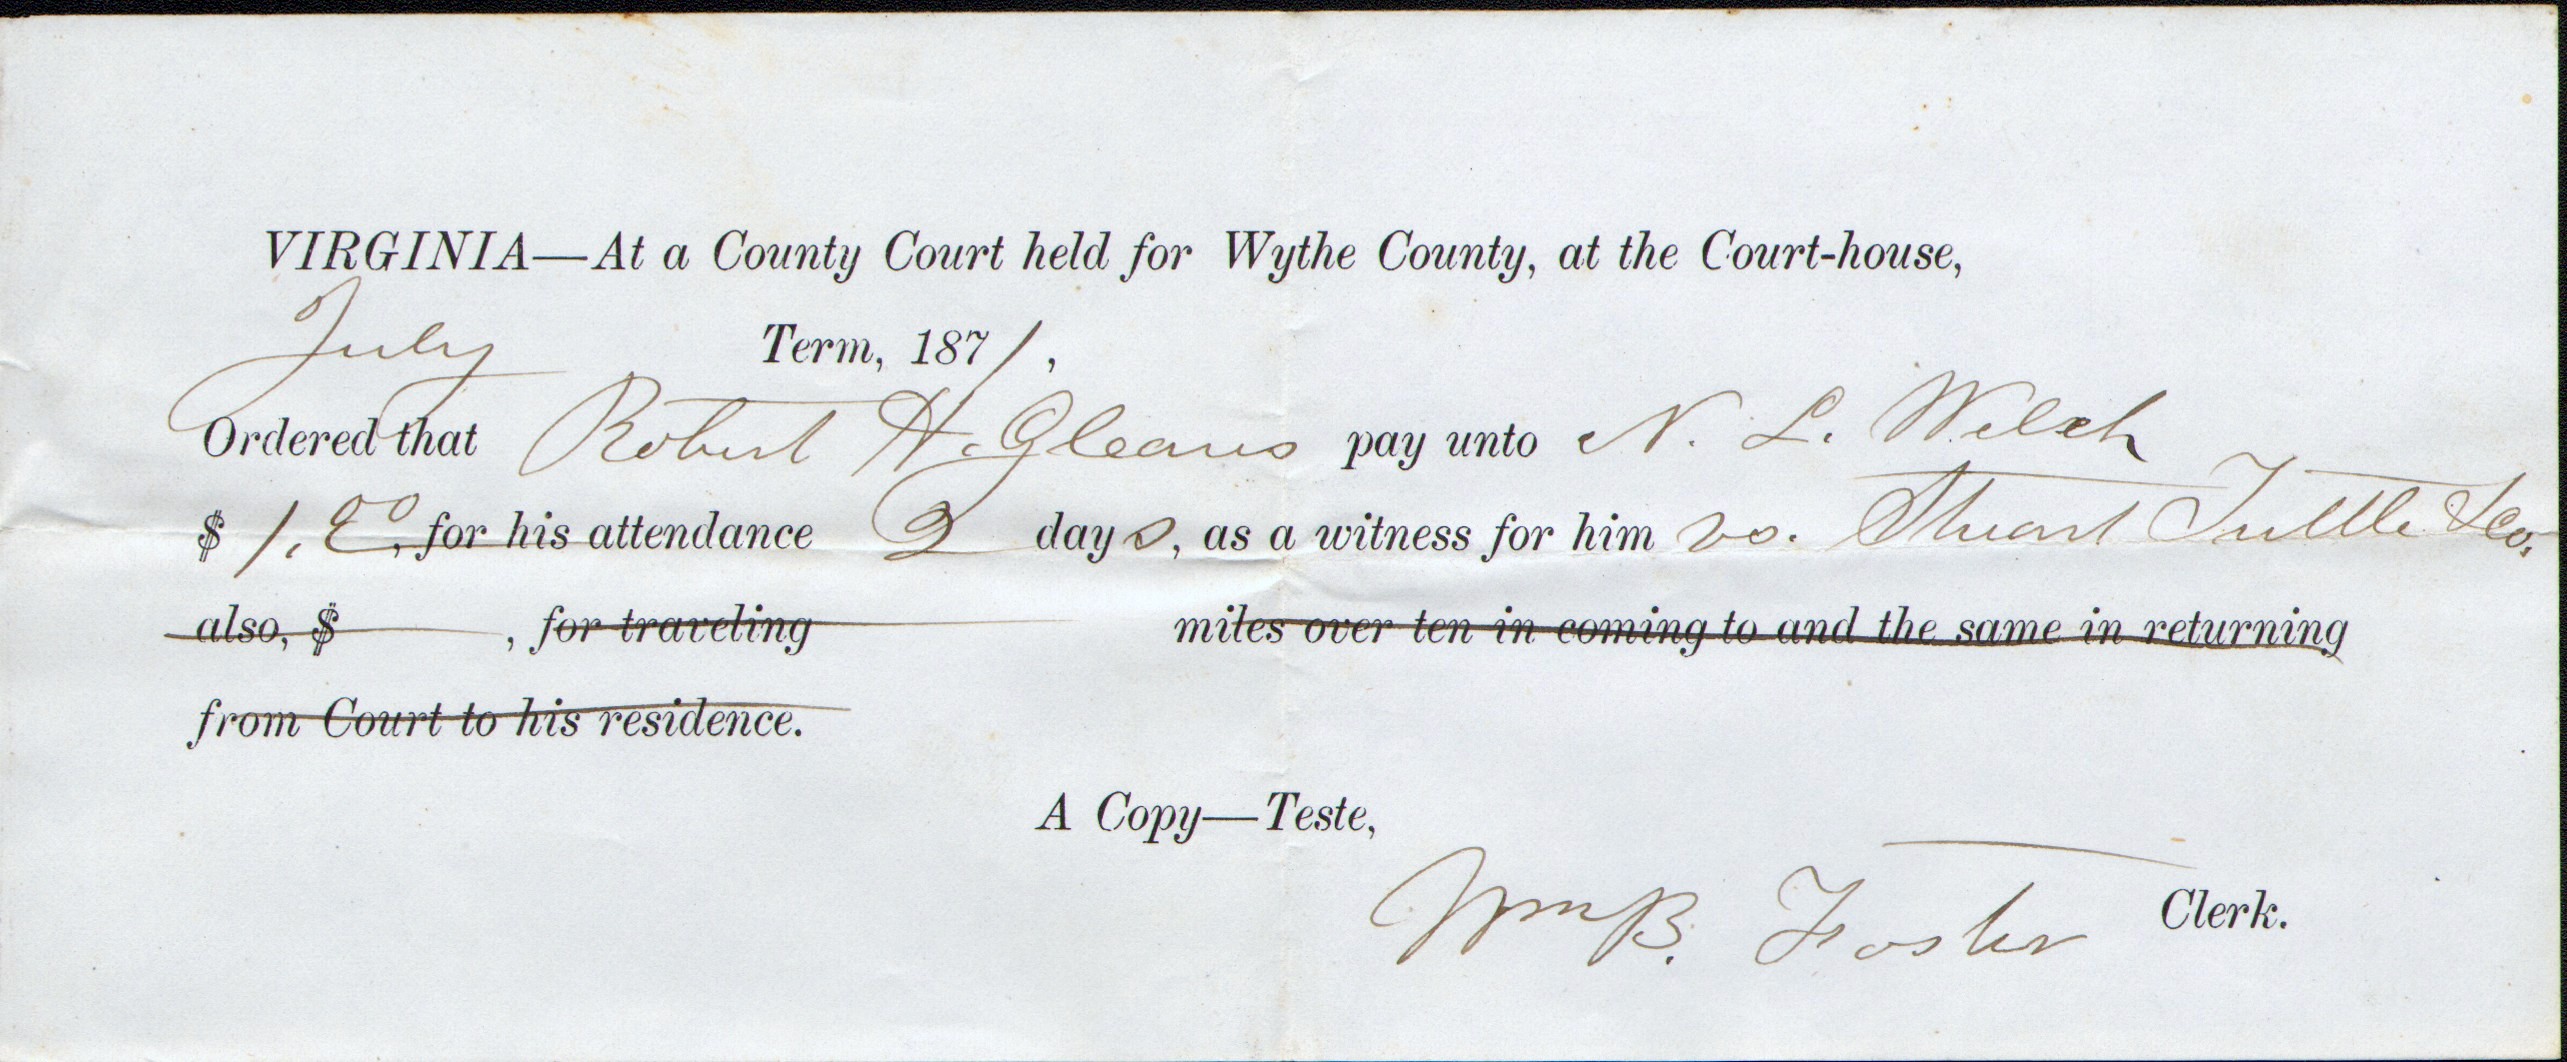 VIRGINIA—At a County Court held for Wythe County, at the Court-house,
July Term, 1871,
Ordered that Robert H. Gleaves pay unto N. L. Welch
$ 1.00, for his attendance 2 days, as a witness for him vs. Stuart Tuttle & Co.
also, $ , for traveling miles over ten in coming to and the same in returning
from Court to his residence.
A Copy—Teste,
Wm B. Foster Clerk.